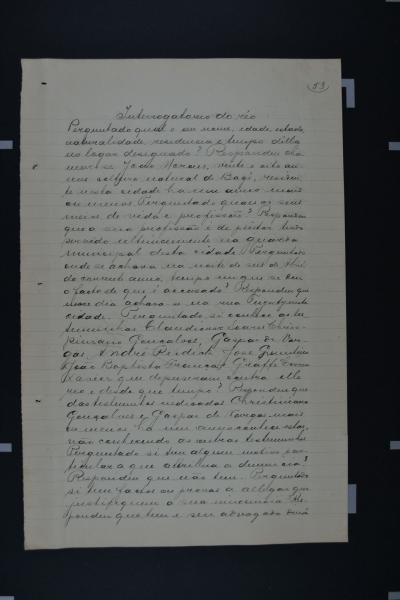 53
Interrogatorio do réo
Perguntado qual o seu nome, idade, estado,
naturalidade, residencia e tempo della
no logar designado? Respondeu cha
mar-se João Moraes, vinte e oito an
nos, solteiro, natural de Bagé, residen
te nesta cidade ha um anno mais
ou menos. Perguntado quaes os seus
meios de vida e profissão? Respondeu
que a sua profissão é de pintor tendo
servido ultimamente na guarda
municipal desta cidade. Perguntado
onde se achava na noite de sete de Abril
do corrente anno, tempo em que se deu
o facto de que é accusado? Respondeu que
nesse dia achava-se na rua
cidade. Perguntado, si conhece as tes
temunhas Claudionor Chris
tiano Gonçalves, Gaspar de Var
gas, André José
João Baptista
Xavier que depuseram contra elle
réo e desde que tempo? Respondeu que
das testemunhas indicadas Christiano
Gonçalves e Gaspar de Vargas mais
ou menos ha um anno conhece estas,
não conhecendo as outras testemunhas.
Perguntado se tem algum motivo par
ticular a que attribua a denuncia?
Respondeu que não tem. Perguntado
si tem factos ou provas a allegar que
justifiquem a sua innocencia? Res
pondeu que tem e seu advogado dirá